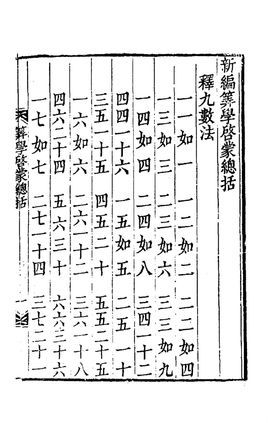 新編筭學啓蒙總括
釋九數法
一一如一　一二如二　二二如四
一三如三　二三如六　三三如九
一四如四　二四如八　三四一十二
四四一十六　一五如五　二五一十
三五一十五　四五二十　五五二十五
一六如六　二六一十二　三六一十八
四六二十四　五六三十　六六三十六
一七如七　二七一十四　三七二十一
筭學啓蒙總括　一